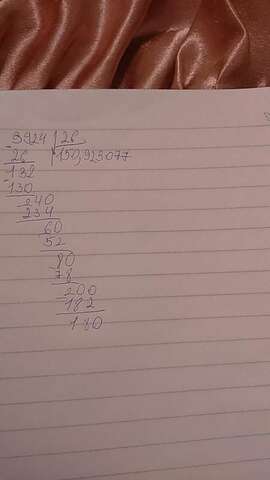 -3924 | 26
26 | 150,923077
-132
130
240
234
60
52
80
78
200
182
180